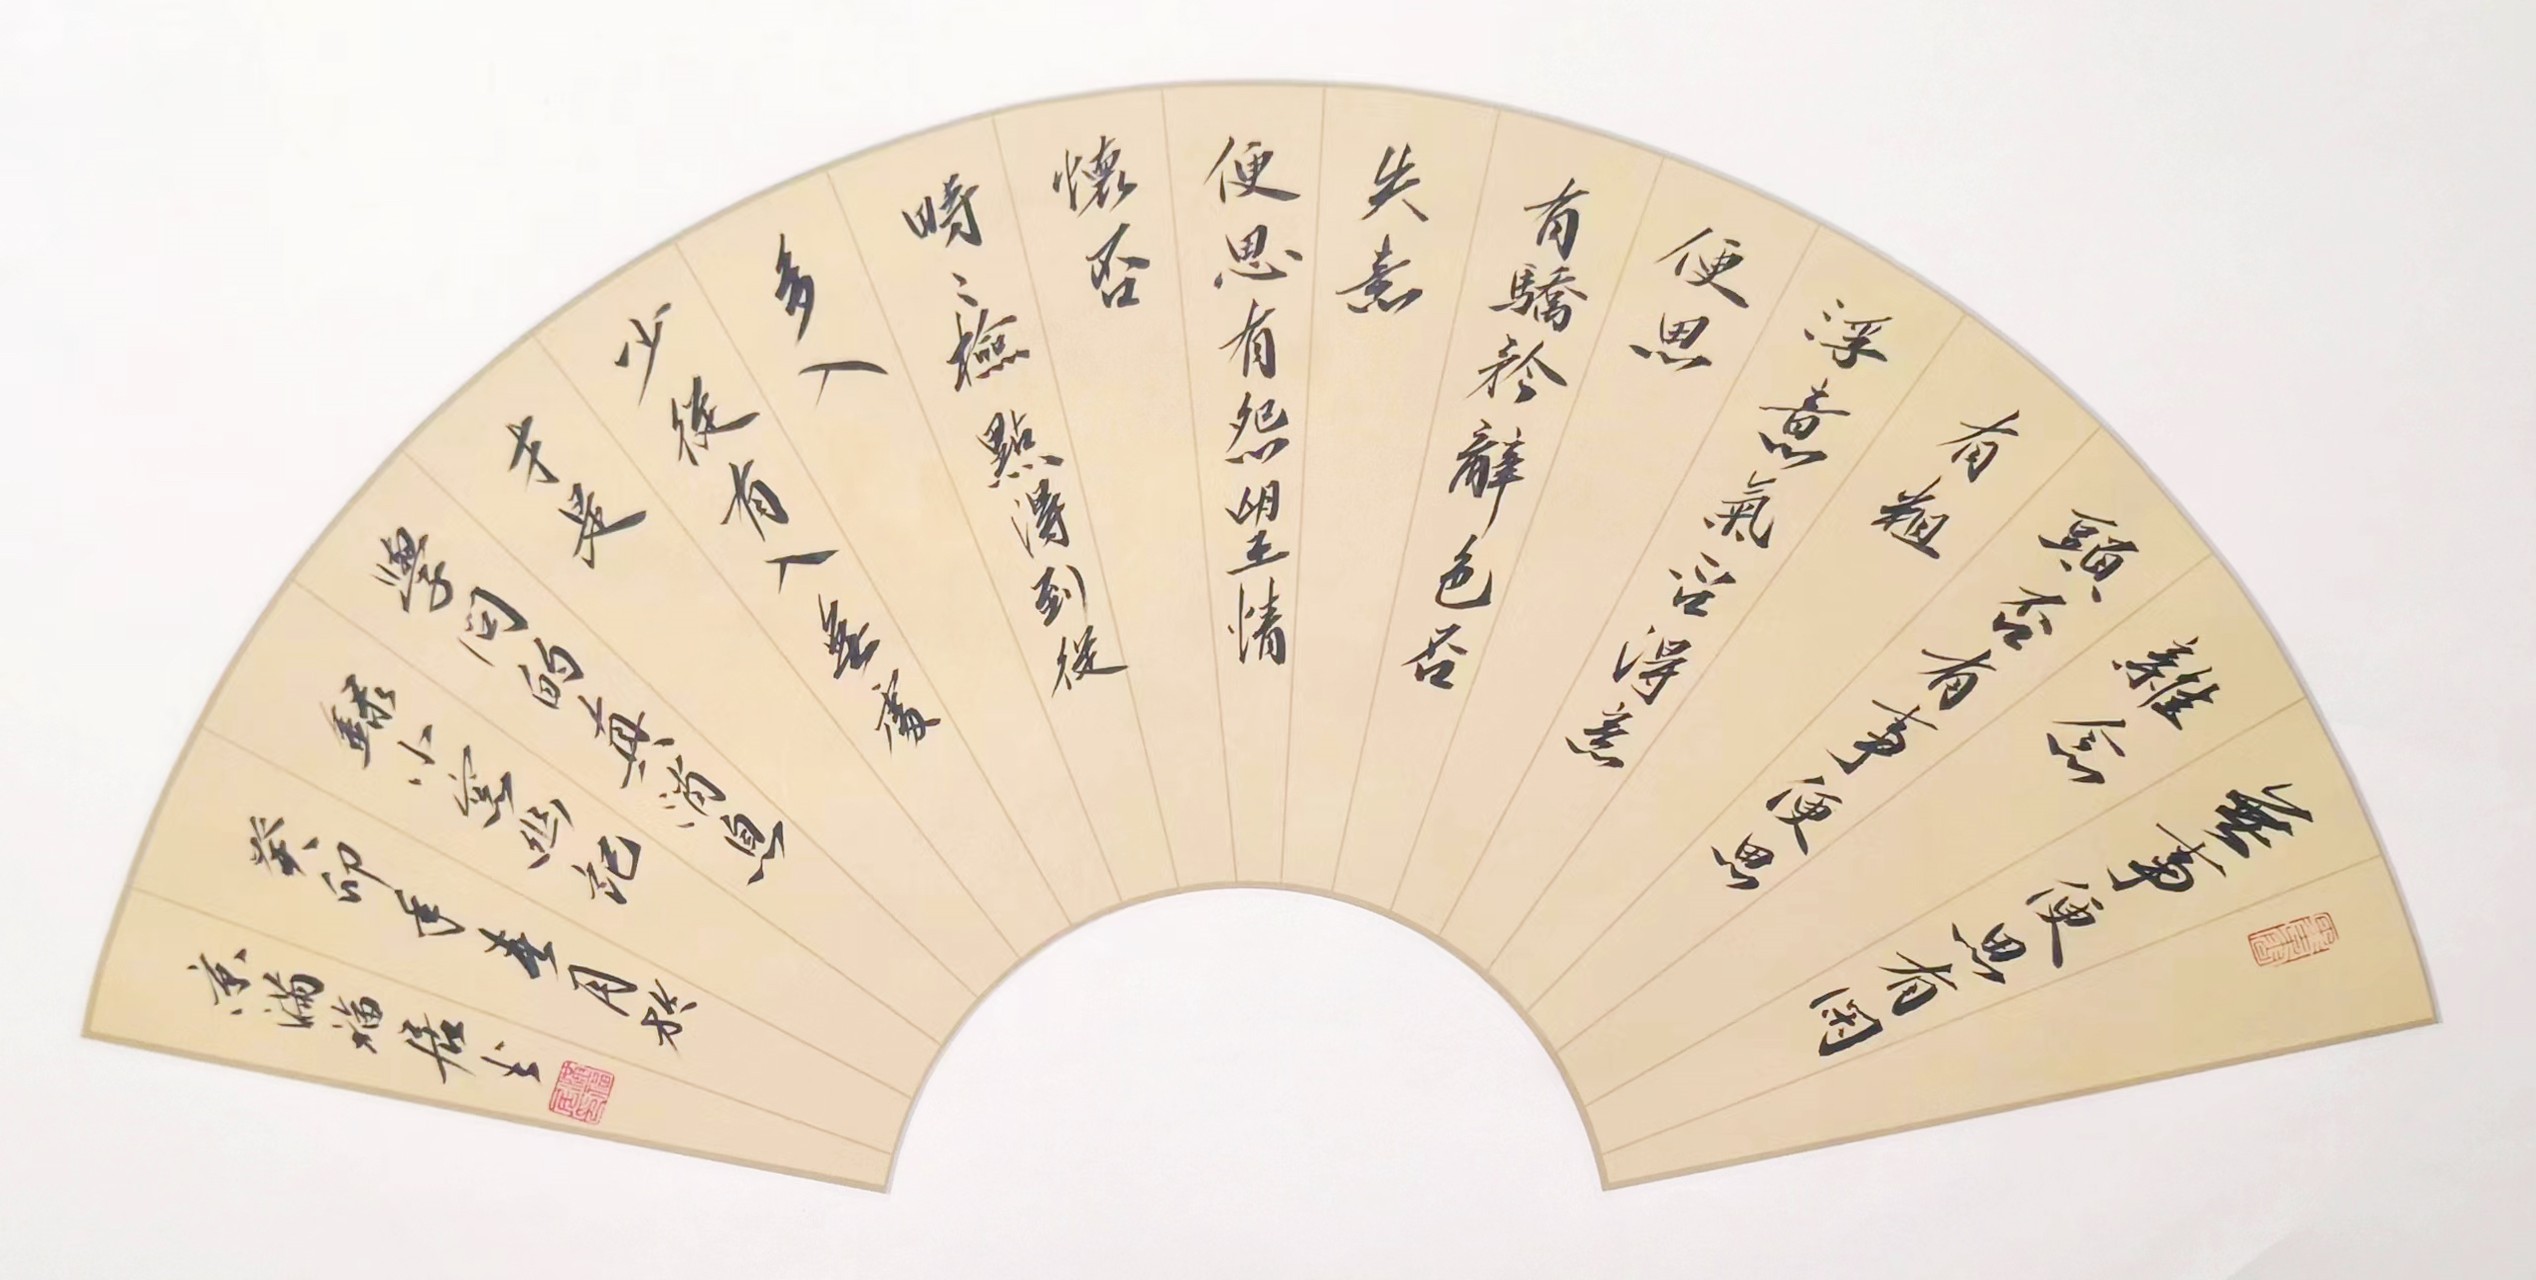 無事便思有閑
雜念
頭否有事便思
有粗
浮意氣否得意
便思
有驕矜辭色否
失意
便思有怨望情
懷否
時〻檢點得到從
多入
少從有入無處
才是
學問的真消息
錄小窗幽記
癸卯年春月於
京滿福居